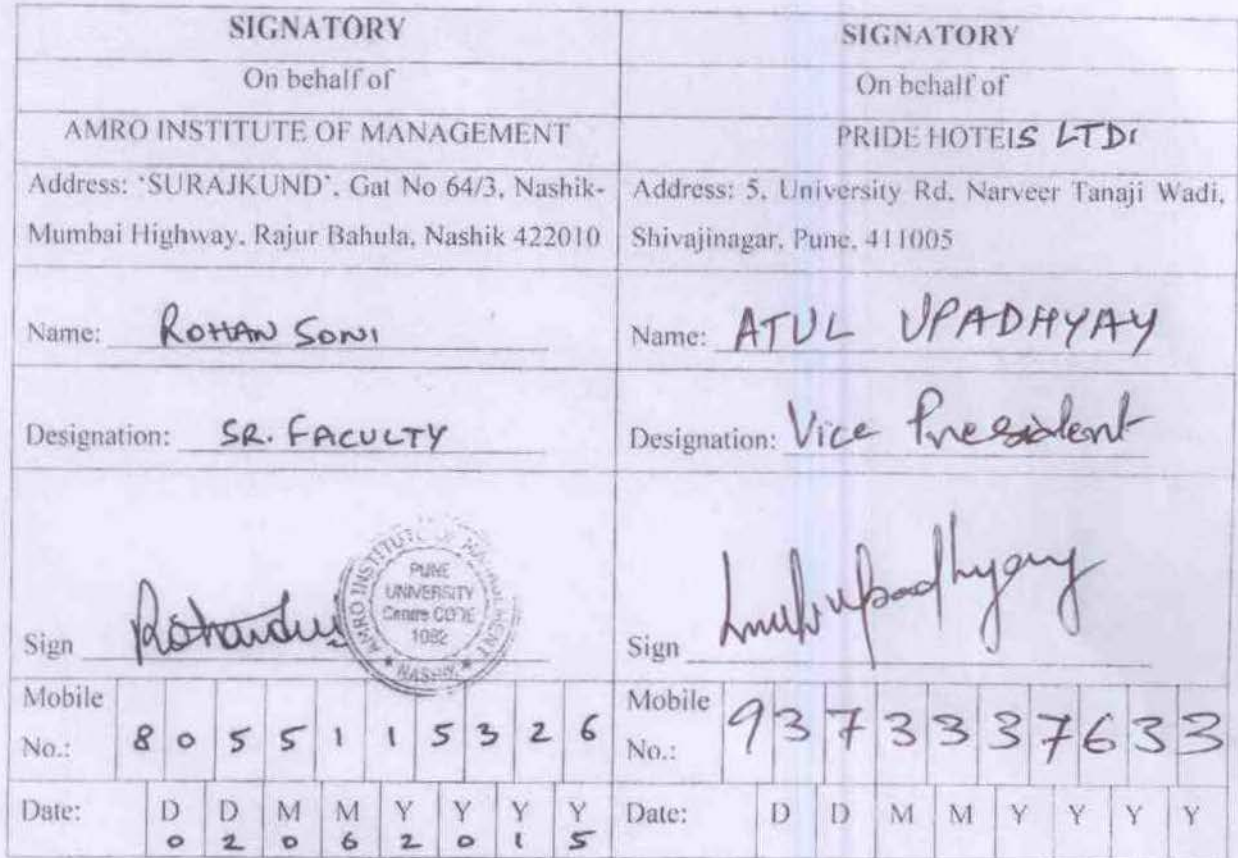 SIGNATORY
On behalf of
AMRO INSTITUTE OF MANAGEMENT
Address: 'SURAJKUND', Gat No 64/3, Nashik-
Mumbai Highway, Rajur Bahula, Nashik 422010
Name: ROHAN SONI
Designation: SR. FACULTY
Sign
AMRO INSTITUTE OF MANAGEMENT
PUNE
UNIVERSITY
Centre CODE
1082
NASHIK
Mobile
No.: 8 0 5 5 1 1 5 3 2 6
Date: D D M M Y Y Y Y
0 2 0 6 2 0 1 5
SIGNATORY
On behalf of
PRIDE HOTElS LTD.
Address: 5, University Rd, Narveer Tanaji Wadi,
Shivajinagar, Pune, 411005
Name: ATUL UPADHYAY
Designation: Vice President
Sign
Mobile
No.: 9 3 7 3 3 3 7 6 3 3
Date: D D M M Y Y Y Y